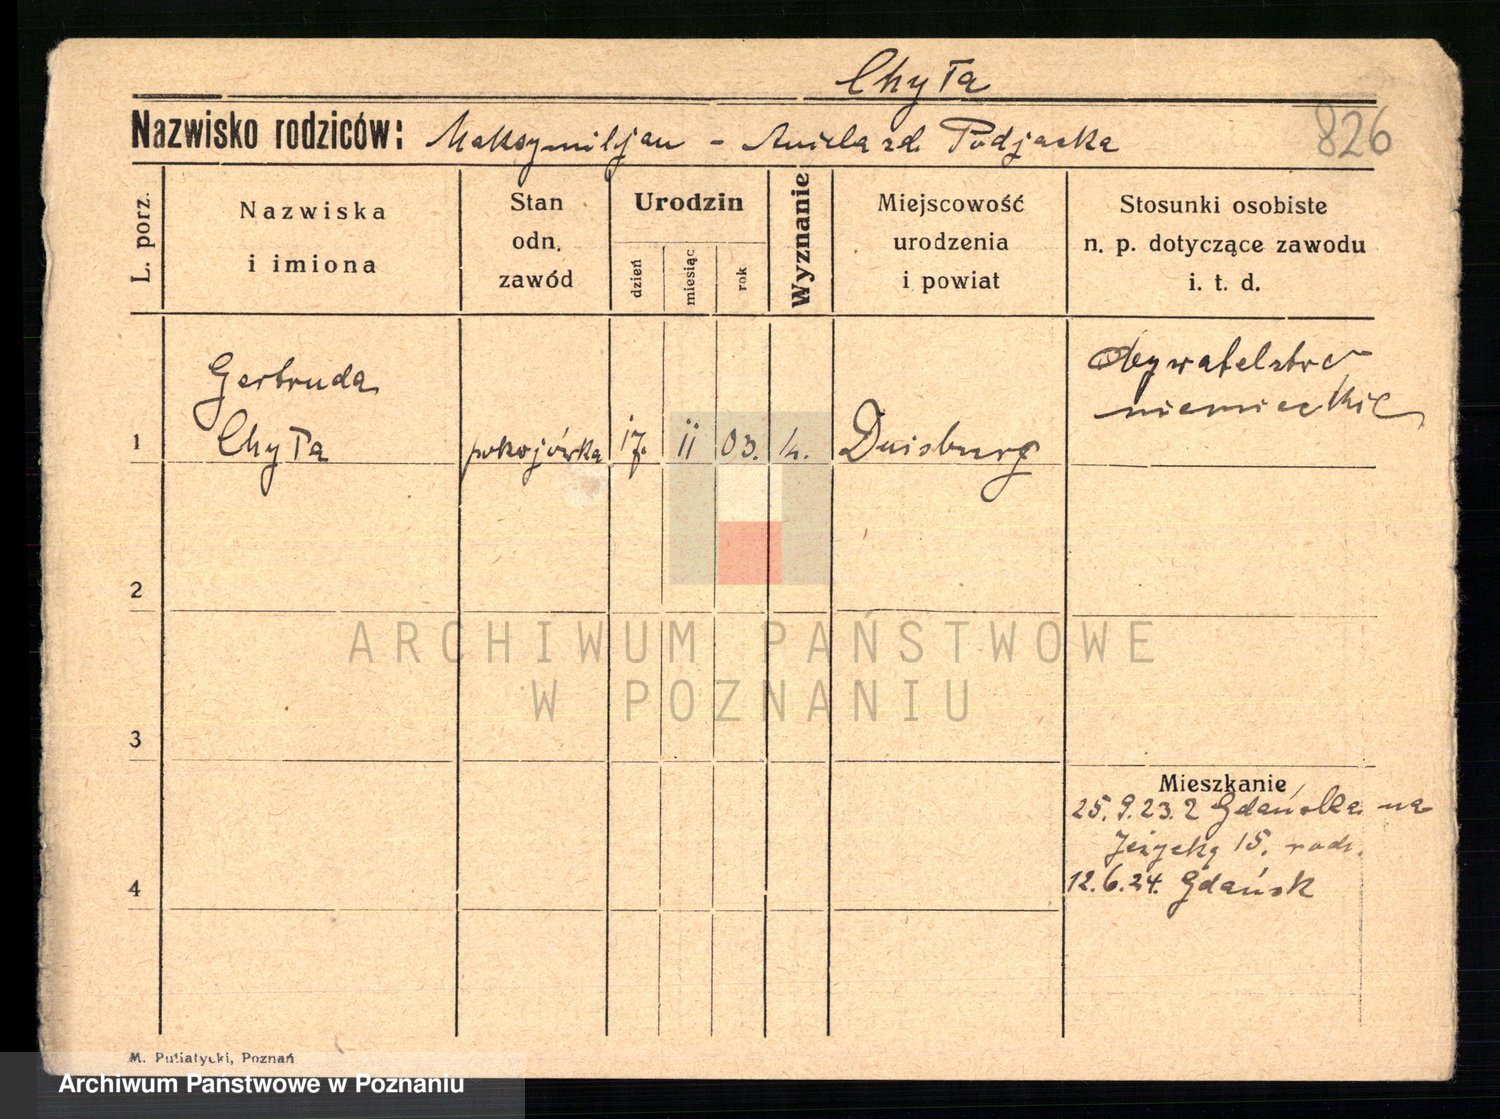 Chyła
826
Nazwisko rodziców: Maksymiljan - Aniela zd. Podjacka
L. porz.
Nazwiska
i imiona
Stan
odn.
zawód
Urodzin
dzień
miesiąc
rok
Wyznanie
Miejscowość
urodzenia
i powiat
Stosunki osobiste
n. p. dotyczące zawodu
i. t. d.
Gertruda
1 Chyła pokojówka 17. 11 03. k. Duisburg
Obywatelstwo
niemieckie
2
3
4
Mieszkanie
25.9.23. z Gdańska na
Jeżycką 15.
12.6.24. Gdańsk
ARCHIWUM PAŃSTWOWE
W POZNANIU
M. Putiatycki, Poznań
Archiwum Państwowe w Poznaniu